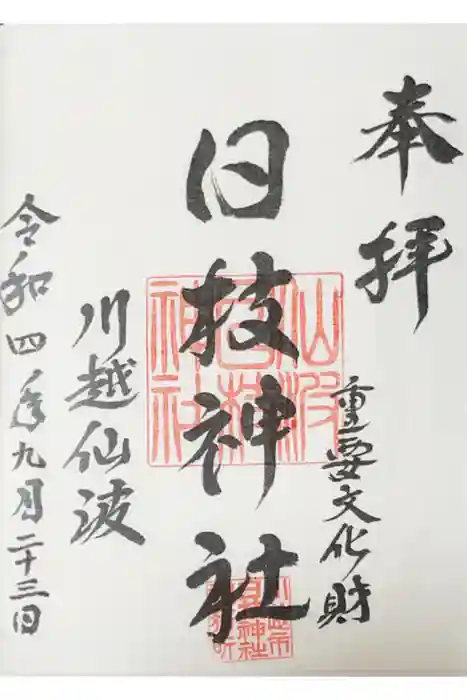 奉拝
重要文化財
日枝神社
川越仙波
令和四年九月二十三日
仙波
日枝
神社